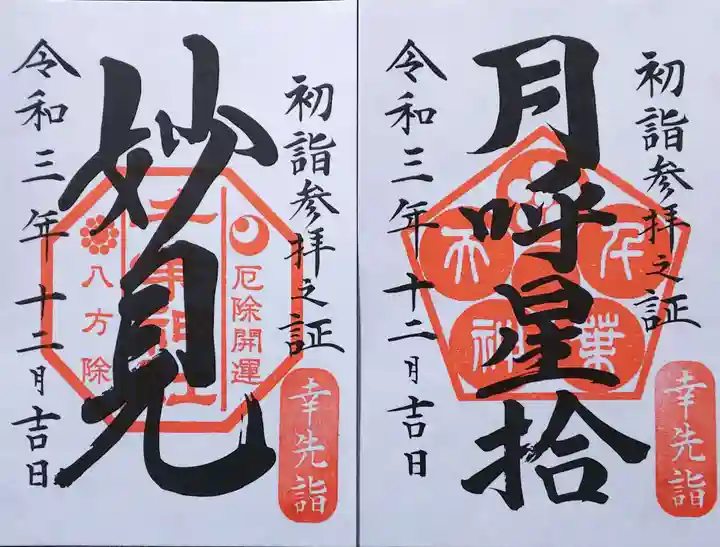 初詣参拝之証
妙見
厄除開運
八方除
令和三年十二月吉日
幸先詣
初詣参拝之証
月呼星拾
千葉
天神
令和三年十二月吉日
幸先詣